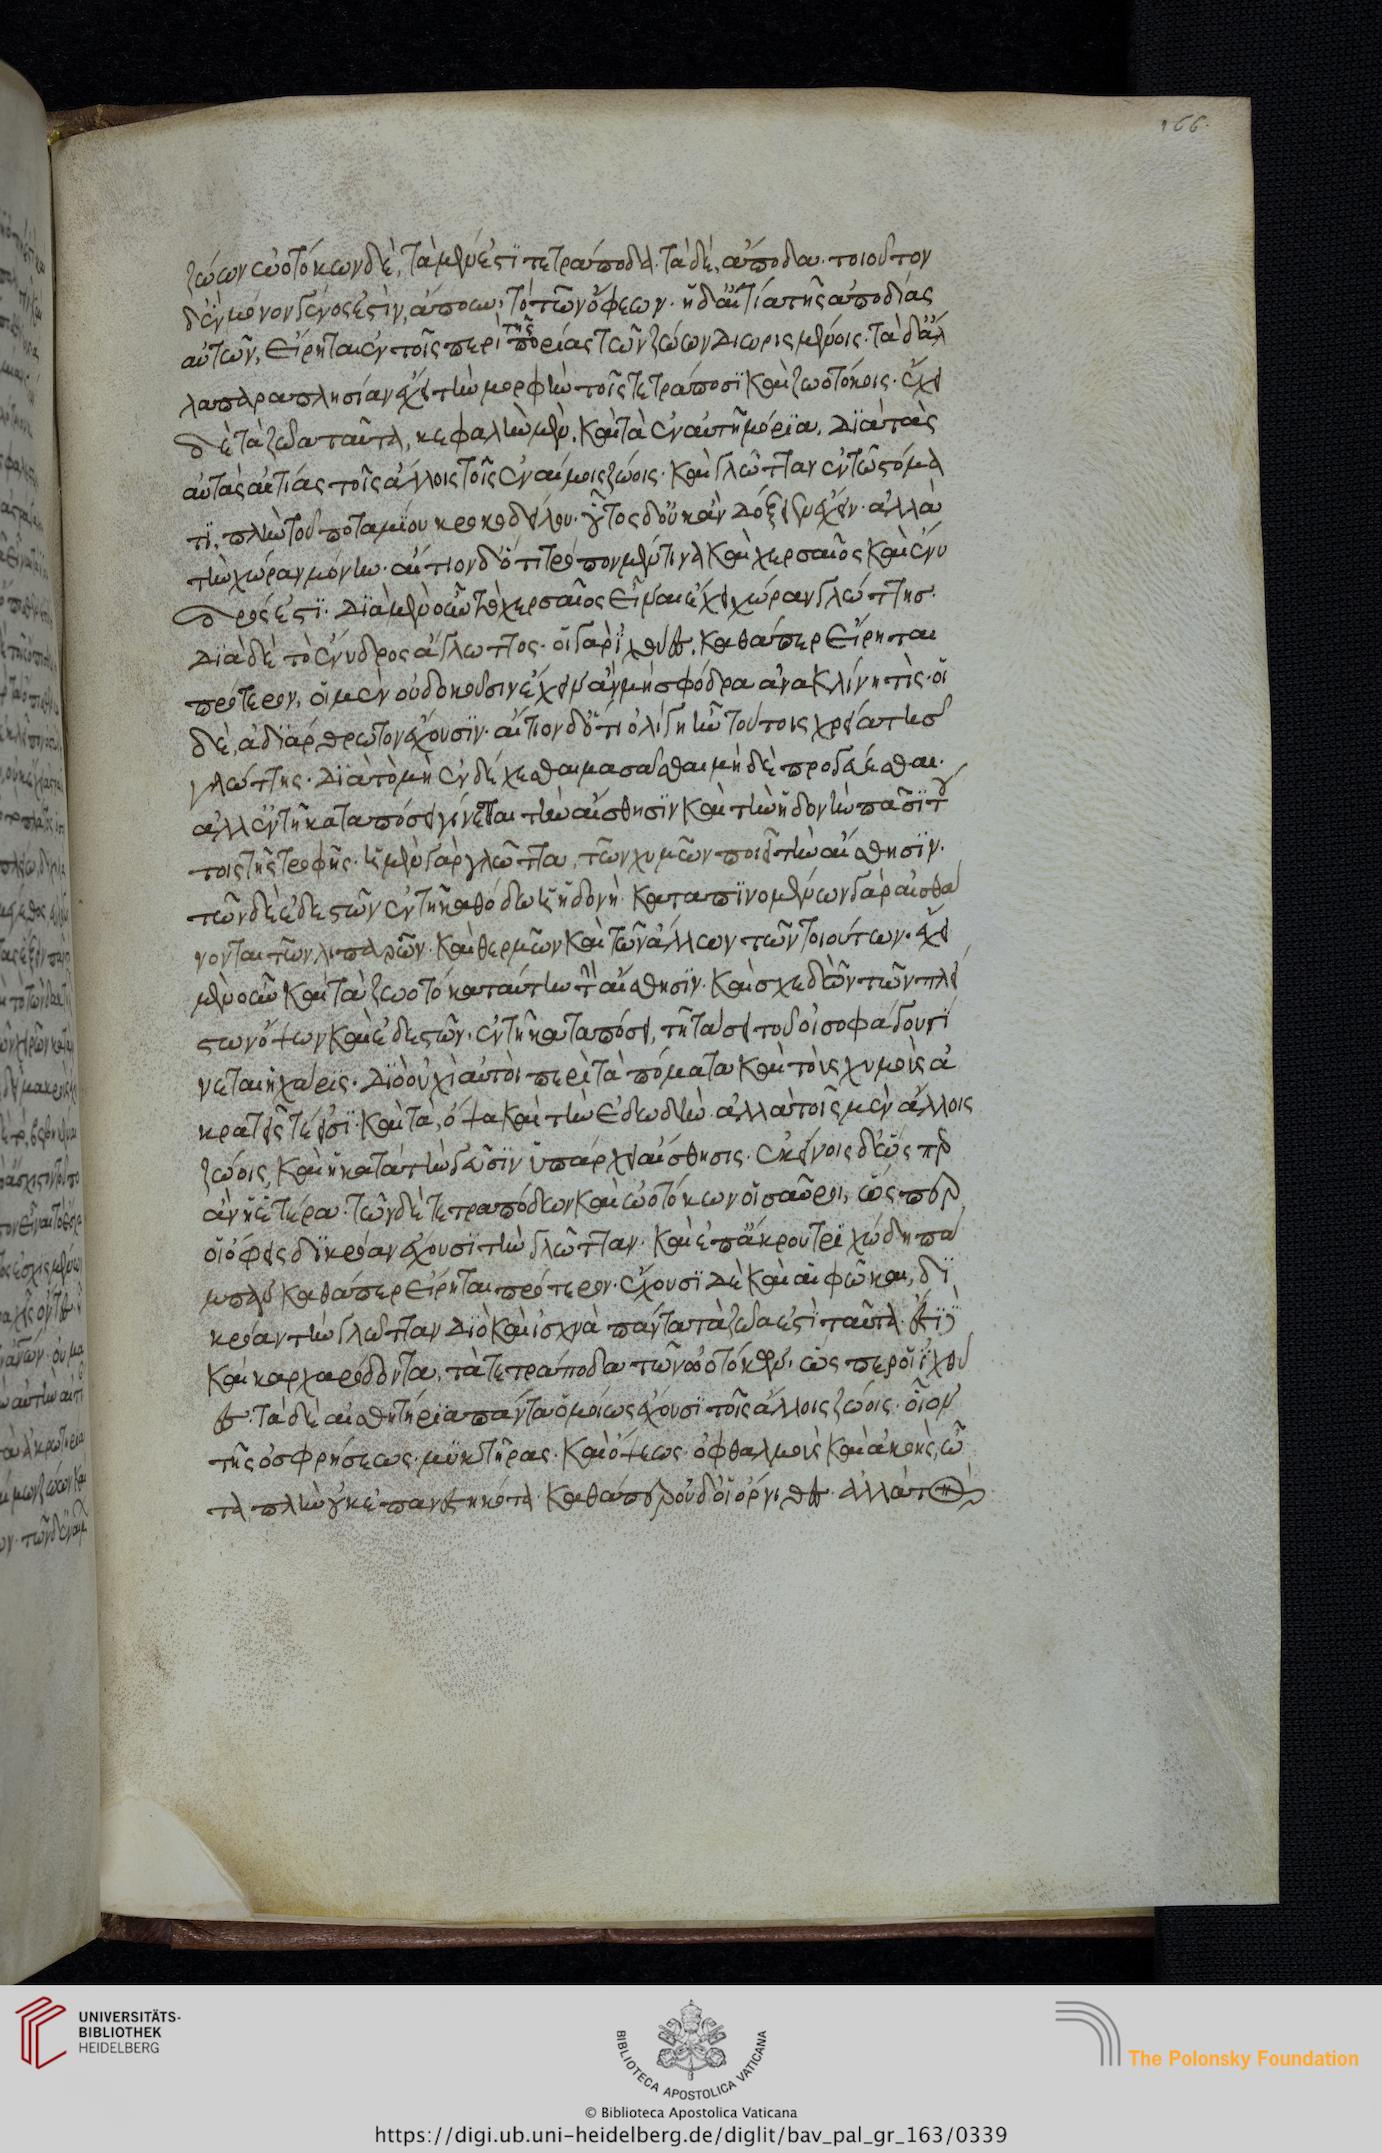 166.
ζώων ὠοτόκων δὲ, τὰ μέν ἐστι τετράποδα. τὰ δέ, ἄποδα. τοιοῦτον
δ' ἓν μόνον γένος ἐστὶν, ἄπουν, τὸ τῶν ὄφεων. ἡ δ' αἰτία τῆς ἀποδίας
αὐτῶν, εἴρηται ἐν τοῖς περὶ τῆς πορείας τῶν ζώων διωρισμένοις. τὰ δ' ἄλ
λα παραπλησίαν ἔχει τὴν μορφὴν τοῖς τετράποσι καὶ ζωοτόκοις. ἔχει
δὲ τὰ ζῶα ταῦτα, κεφαλὴν μὲν, καὶ τὰ ἐν αὐτῇ μόρια, διὰ τὰς
αὐτὰς αἰτίας τοῖς ἄλλοις τοῖς ἐναίμοις ζώοις. καὶ γλῶτταν ἐν τῶ στόμα
τι, πλὴν τοῦ ποταμίου κροκοδείλου. οὗτος δ' οὐκ ἂν δόξειεν ἔχειν. ἀλλὰ
τὴν χώραν μόνην. αἴτιον δ' ὅτι τρόπον μέν τινα καὶ χερσαῖος καὶ ἔνυ
δρός ἐστι. διὰ μὲν οὖν τὸ χερσαῖος εἶναι ἔχει χώραν γλώττης.
διὰ δὲ τὸ ἔνυδρος ἄγλωττος. οἱ γὰρ ἰχθύες, καθάπερ εἴρηται
πρότερον, οἱ μὲν οὐ δοκοῦσιν ἔχειν ἂν μὴ σφόδρα ἀνακλίνη τὶς. οἱ
δὲ, ἀδιάρθρωτον ἔχουσιν. αἴτιον δ' ὅτι ὀλίγη ἦν τούτοις χρεία τῆς
γλώττης. διὰ τὸ μὴ ἐνδέχεσθαι μασᾶσθαι μηδὲ προγεύεσθαι.
ἀλλ' ἐν τῇ καταπόσει γίνεσθαι τὴν αἴσθησιν καὶ τὴν ἡδονὴν πᾶσι τού
τοις τῆς τροφῆς. ἡ μὲν γὰρ γλῶττα, τῶν χυμῶν ποιεῖ τὴν αἴσθησιν.
τῶν δὲ ἐδεστῶν ἐν τῇ καθόδω ἡ ἡδονή. καταπινομένων γὰρ αἰσθά
νονται τῶν λιπαρῶν. καὶ θερμῶν καὶ τῶν ἄλλων τῶν τοιούτων. ἔχει
μὲν οὖν καὶ τὰ ζωοτόκα ταύτην τὴν αἴσθησιν. καὶ σχεδὸν τῶν πλεί
στων ὄψων καὶ ἐδεστῶν. ἐν τῇ καταπόσει, τῇ τάσει τοῦ οἰσοφάγου γί
νεται ἡ χάρις. διὸ οὐχὶ αὐτοὶ περὶ τὰ πόματα καὶ τοὺς χυμοὺς ἀ
κρατεῖς τέ εἰσι καὶ τὰ, ὄψα καὶ τὴν ἐδωδὴν. ἀλλὰ τοῖς μὲν ἄλλοις
ζώοις, καὶ ἡ κατὰ τὴν γεῦσιν ὑπάρχει αἴσθησις. ἐκείνοις δ' ὥσπερ
ἂν ἡ ἑτέρα. τῶν δὲ τετραπόδων καὶ ὠοτόκων οἱ σαῦροι, ὥσπερ
οἱ ὄφεις δικρόαν ἔχουσι τὴν γλῶτταν. καὶ ἐπ' ἄκρου τριχώδη πά
μπαν καθάπερ εἴρηται πρότερον. ἔχουσι δὲ καὶ αἱ φῶκαι, δι
κρόαν τὴν γλῶτταν διὸ καὶ ἰσχνὰ πάντα τὰ ζῶα ἐστὶ ταῦτα. ἔστι
καὶ καρχαρόδοντα, τὰ τετράποδα τῶν ὠοτόκων, ὥσπερ οἱ ἰχθύ
ες. τὰ δὲ αἰσθητήρια πάντα ὁμοίως ἔχουσι τοῖς ἄλλοις ζώοις. οἷον
τῆς ὀσφρήσεως. μυκτῆρας. καὶ ὄψεως. ὀφθαλμοὺς καὶ ἀκοῆς, ὦ
τα πλὴν οὐκ ἐπανεστηκότα. καθάπερ οὐδ' οἱ ὄρνιθες. ἀλλὰ τὸν
UNIVERSITÄTS-
BIBLIOTHEK
HEIDELBERG
BIBLIOTECA APOSTOLICA VATICANA
The Polonsky Foundation
© Biblioteca Apostolica Vaticana
https://digi.ub.uni-heidelberg.de/diglit/bav_pal_gr_163/0339